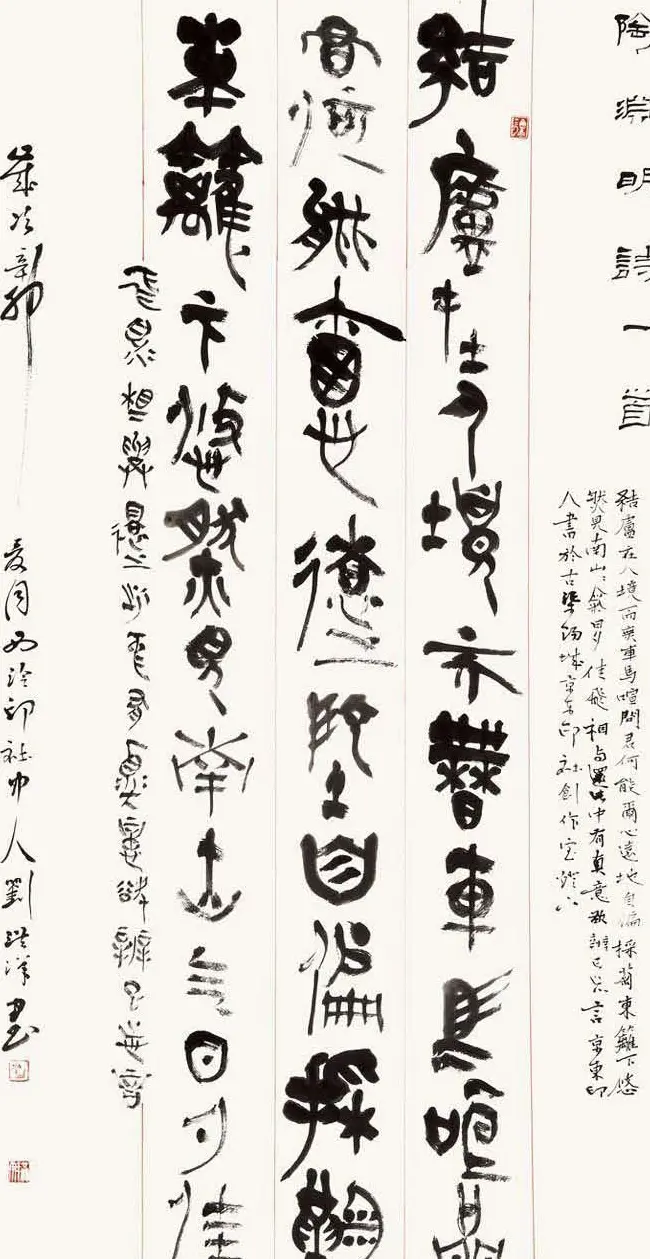 陶淵明詩一首
結廬在人境而無車馬喧問君何能爾心遠地自偏採菊東籬下悠
然見南山〻氣日夕佳飛相与還此中有真意欲辨已忘言京東印
人書於古城京东印社創作室燈下
結廬在人境而無車馬喧問
君何能爾心遠地自偏採菊
東籬下悠然見南山氣日夕佳
飛鳥相與還此中有真意欲辨已忘言
歲次辛卯夏月西泠印社中人劉洪洋書